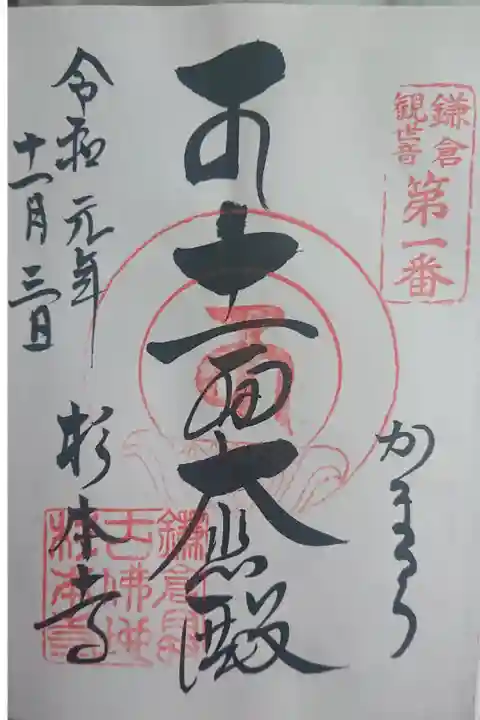 鎌倉
観世音
第一番
かまくら
十一面大悲殿
令和元年
十一月三日
杉本寺
鎌倉最
古佛地
杉本寺